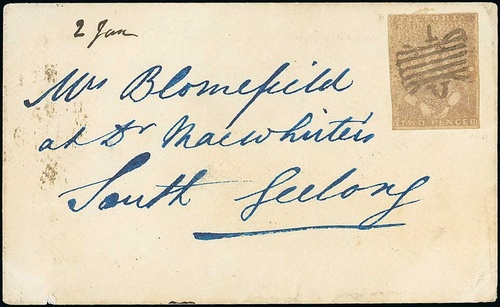 2 Jan
VICTORIA
Mrs Blomefield
at Dr Macwhirter's
South Geelong
TWO PENCE